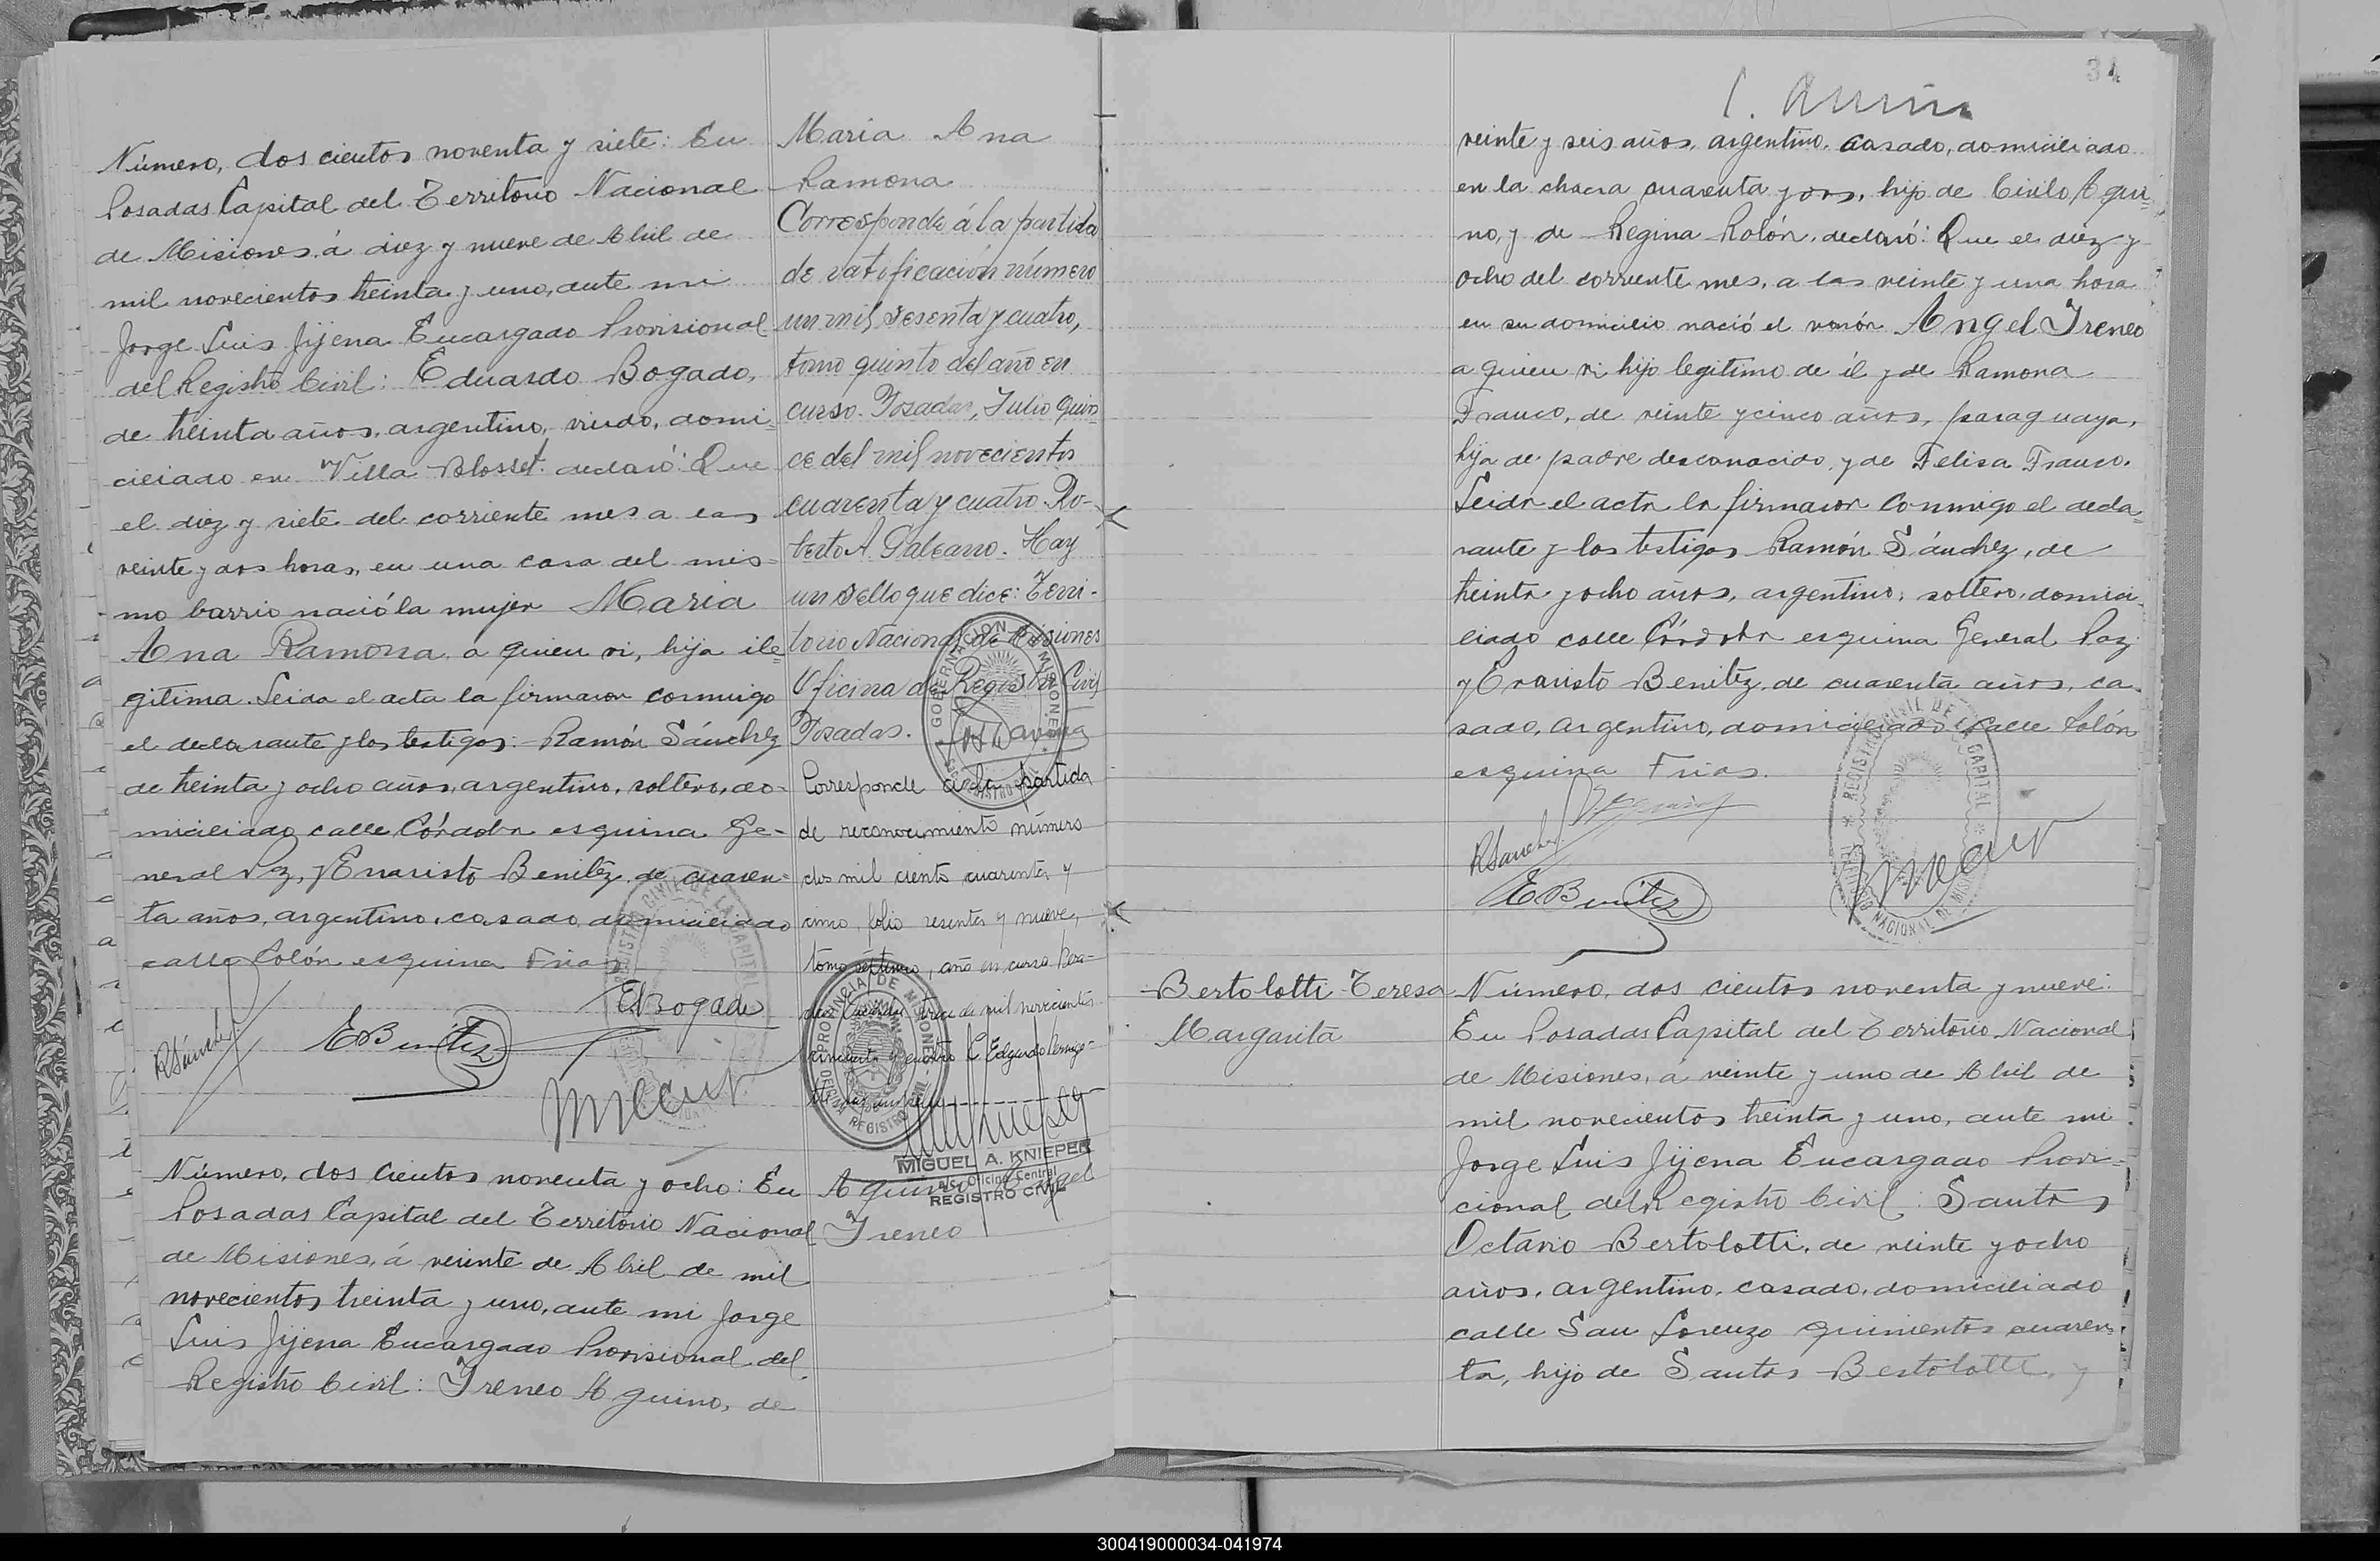 Número, dos cientos noventa y siete: En
Posadas Capital del Territorio Nacional
de Misiones, á diez y nueve de Abril de
mil novecientos treinta y uno, ante mi
Jorge Luis Jijena Encargado Provisional
del Registro Civil: Eduardo Bogado,
de treinta años, argentino, viudo, domi-
ciliado en "Villa Blosset" declaró: Que
el diez y siete del corriente mes a las
veinte y dos horas, en una casa del mis-
mo barrio nació la mujer Maria
Ana Ramona, a quien vi, hija ile-
gitima. Leida el acta la firmaron conmigo
el declarante y los testigos: Ramón Sánchez
de treinta y ocho años, argentino, soltero, do-
miciliado calle Córdoba esquina Ge-
neral Paz, y Evaristo Benitez, de cuaren-
ta años, argentino, casado, domiciliado
calle Colón esquina Frias
EBogado
RSánchez
EBenitez
Maria Ana
Ramona
Corresponde á la partida
de ratificación número
un mil sesenta y cuatro,
tomo quinto del año en
curso. Posadas, Julio quin-
ce del mil novecientos
cuarenta y cuatro. Ro-
berto A. Galeano. Hay
un sello que dice: Terri-
torio Nacional de Misiones
Oficina de Registro Civil
Posadas.
GOBERNACION MISIONES
Corresponde a la partida
de reconocimiento número
dos mil ciento cuarenta y
cinco, folio sesenta y nueve,
tomo séptimo, año en curso. Posa-
das, trece de mil novecientos
cincuenta y cuatro Edgardo
PROVINCIA DE MISIONES
REGISTRO CIVIL
MIGUEL A. KNIEPER
a/c. Oficina Central
REGISTRO CIVIL
Número, dos cientos noventa y ocho: En
Posadas Capital del Territorio Nacional
de Misiones, á veinte de Abril de mil
novecientos treinta y uno, ante mi Jorge
Luis Jijena Encargado Provisional del
Registro Civil: Ireneo Aquino, de
Aquino Angel
Ireneo
34
veinte y seis años, argentino, casado, domiciliado
en la chacra cuarenta y dos, hijo de Cirilo Aqui-
no, y de Regina Rolón, declaró: Que el diez y
ocho del corriente mes, a las veinte y una hora
en su domicilio nació el varón Angel Ireneo
a quien vi hijo legitimo de él y de Ramona
Franco, de veinte y cinco años, paraguaya,
hija de padre desconocido, y de Felisa Franco.
Leida el acta la firmaron conmigo el decla-
rante y los testigos Ramón Sánchez, de
treinta y ocho años, argentino, soltero, domici-
liado calle Córdoba esquina General Paz
y Evaristo Benitez, de cuarenta años, ca-
sado, argentino, domiciliado calle Colón
esquina Frias.
RSanchez
EBenitez
REGISTRO CIVIL DE LA CAPITAL
Bertolotti Teresa
Margarita
Número, dos cientos noventa y nueve:
En Posadas Capital del Territorio Nacional
de Misiones, a veinte y uno de Abril de
mil novecientos treinta y uno, ante mi
Jorge Luis Jijena Encargado Provi-
cional del Registro Civil: Santos
Octavio Bertolotti, de veinte y ocho
años, argentino, casado, domiciliado
calle San Lorenzo quinientos cuaren-
ta, hijo de Santos Bertolotti, y
300419000034-041974